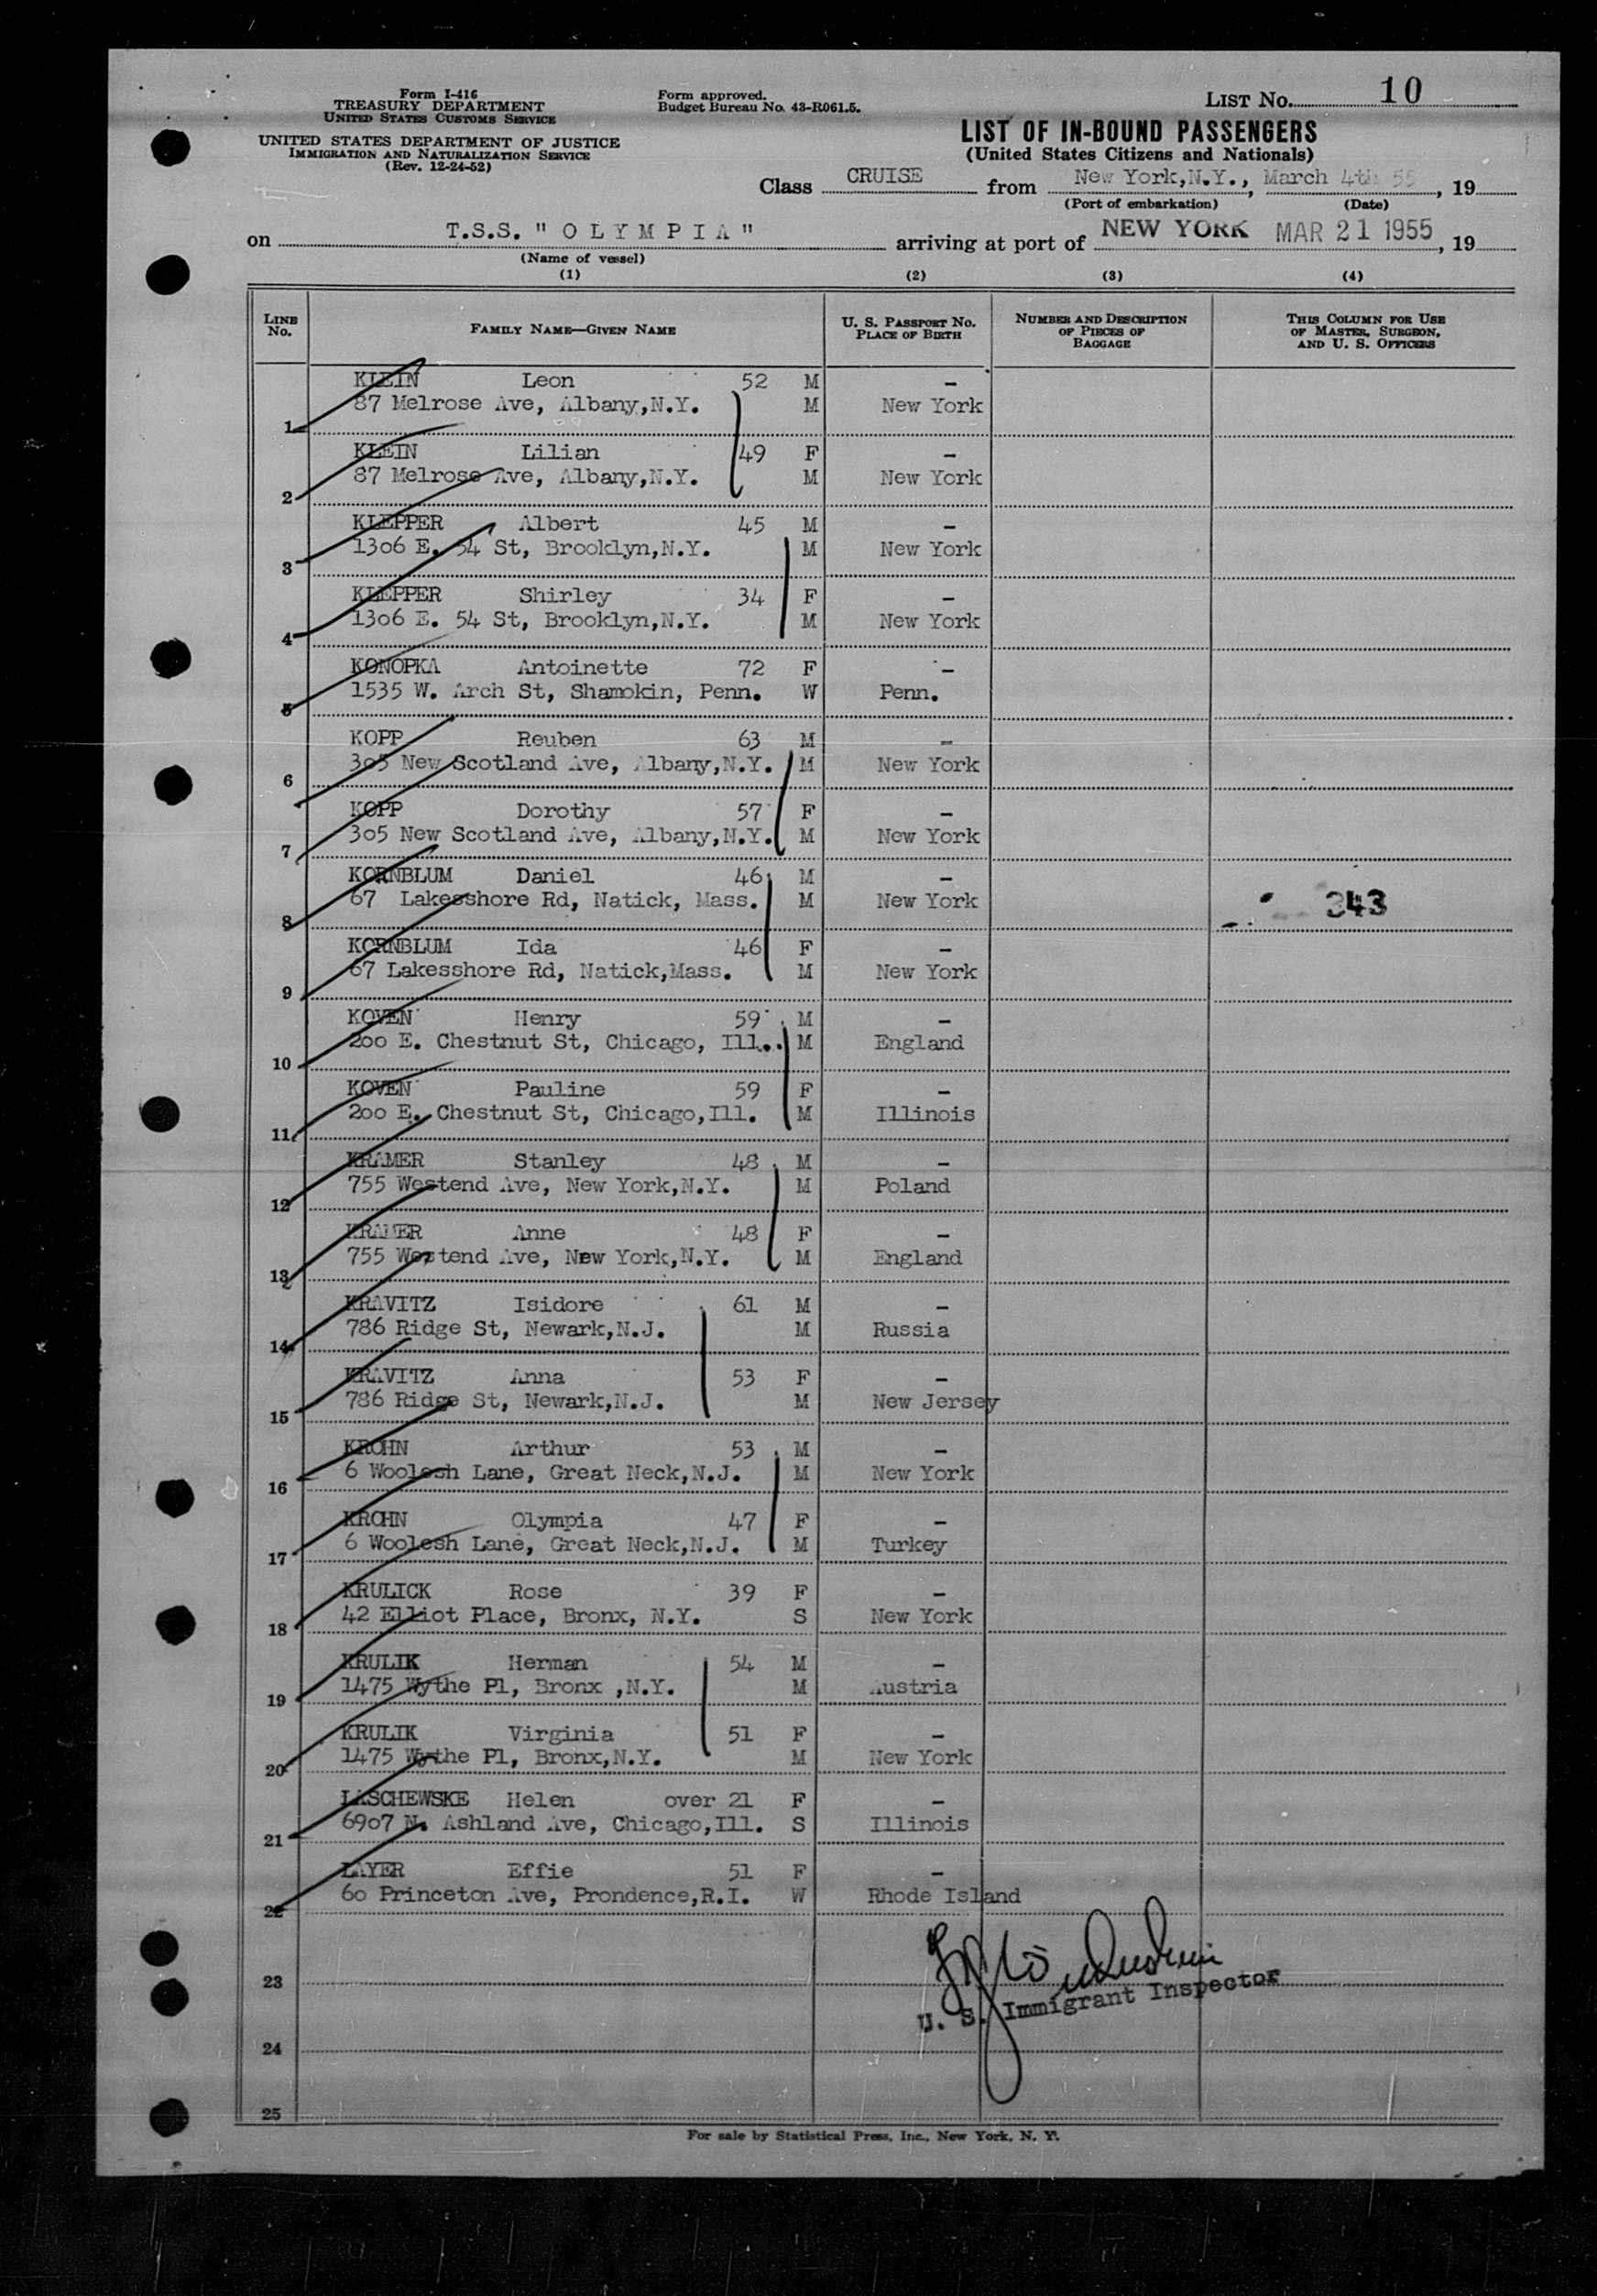 Form I-416
TREASURY DEPARTMENT
UNITED STATES CUSTOMS SERVICE
UNITED STATES DEPARTMENT OF JUSTICE
IMMIGRATION AND NATURALIZATION SERVICE
(Rev. 12-24-52)
Form approved.
Budget Bureau No. 43-R061.5.
LIST No. 10
LIST OF IN-BOUND PASSENGERS
(United States Citizens and Nationals)
Class CRUISE from New York,N.Y., March 4th 55, 19
(Port of embarkation) (Date)
on T.S.S. " O L Y M P I A " arriving at port of NEW YORK MAR 21 1955, 19
(Name of vessel)
(1) (2) (3) (4)
LINE No. FAMILY NAME—GIVEN NAME U. S. PASSPORT No. PLACE OF BIRTH NUMBER AND DESCRIPTION OF PIECES OF BAGGAGE THIS COLUMN FOR USE OF MASTER, SURGEON, AND U. S. OFFICERS
KLEIN Leon 52 M –
87 Melrose Ave, Albany,N.Y. M New York
1
KLEIN Lilian 49 F –
87 Melrose Ave, Albany,N.Y. M New York
2
KLEPPER Albert 45 M –
1306 E. 54 St, Brooklyn,N.Y. M New York
3
KLEPPER Shirley 34 F –
1306 E. 54 St, Brooklyn,N.Y. M New York
4
KONOPKA Antoinette 72 F –
1535 W. Arch St, Shamokin, Penn. W Penn.
5
KOPP Reuben 63 M –
305 New Scotland Ave, Albany,N.Y. M New York
6
KOPP Dorothy 57 F –
305 New Scotland Ave, Albany,N.Y. M New York
7
KORNBLUM Daniel 46 M –
67 Lakesshore Rd, Natick, Mass. M New York 343
8
KORNBLUM Ida 46 F –
67 Lakesshore Rd, Natick,Mass. M New York
9
KOVEN Henry 59 M –
200 E. Chestnut St, Chicago, Ill.. M England
10
KOVEN Pauline 59 F –
200 E. Chestnut St, Chicago,Ill. M Illinois
11
KRAMER Stanley 48 M –
755 Westend Ave, New York,N.Y. M Poland
12
KRAMER Anne 48 F –
755 Westend Ave, New York,N.Y. M England
13
KRAVITZ Isidore 61 M –
786 Ridge St, Newark,N.J. M Russia
14
KRAVITZ Anna 53 F –
786 Ridge St, Newark,N.J. M New Jersey
15
KROHN Arthur 53 M –
6 Woolesh Lane, Great Neck,N.J. M New York
16
KROHN Olympia 47 F –
6 Woolesh Lane, Great Neck,N.J. M Turkey
17
KRULICK Rose 39 F –
42 Elliot Place, Bronx, N.Y. S New York
18
KRULIK Herman 54 M –
1475 Wythe Pl, Bronx ,N.Y. M Austria
19
KRULIK Virginia 51 F –
1475 Wythe Pl, Bronx,N.Y. M New York
20
LASCHEWSKE Helen over 21 F –
6907 N. Ashland Ave, Chicago,Ill. S Illinois
21
LAYER Effie 51 F –
60 Princeton Ave, Prondence,R.I. W Rhode Island
22
23
U. S. Immigrant Inspector
24
25
For sale by Statistical Press, Inc., New York, N. Y.